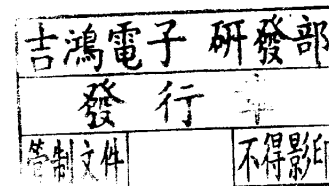 吉鴻電子 研發部
發 行 章
管制文件 不得影印